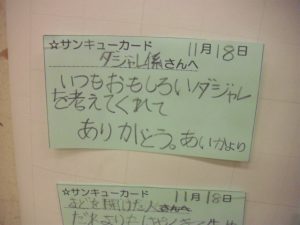 ☆サンキューカード 11月18日
ダジャレ係さんへ
いつもおもしろいダジャレ
を考えてくれて
ありがとう。あいかより
☆サンキューカード 11月18日
まどを開けた人さんへ